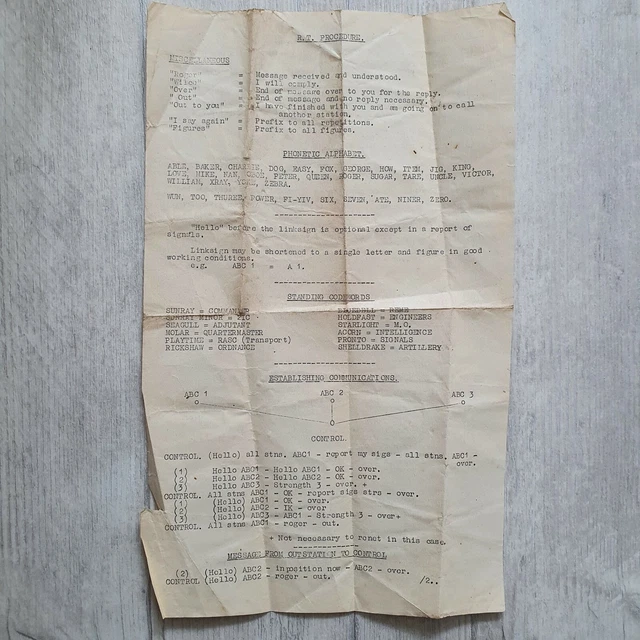 R.T. PROCEDURE.
MISCELLANEOUS
"Roger" = Message received and understood.
"Wilco" = I will comply.
"Over" = End of message over to you for the reply.
"Out" = End of message and no reply necessary.
"Out to you" = I have finished with you and am going on to call
another station.
"I say again" = Prefix to all repetitions.
"Figures" = Prefix to all figures.
PHONETIC ALPHABET.
ABLE, BAKER, CHARLIE, DOG, EASY, FOX, GEORGE, HOW, ITEM, JIG, KING,
LOVE, MIKE, NAN, OBOE, PETER, QUEEN, ROGER, SUGAR, TARE, UNCLE, VICTOR,
WILLIAM, XRAY, YOKE, ZEBRA.
WUN, TOO, THUREE, POWER, FI-YIV, SIX, SEVEN, ATE, NINER, ZERO.
"Hello" before the linksign is optional except in a report of
signals.
Linksign may be shortened to a single letter and figure in good
working conditions.
e.g. ABC 1 = A 1.
STANDING CODEWORDS
SUNRAY = COMMANDER
SUNRAY MINOR = 2IC = REME
SEAGULL = ADJUTANT HOLDFAST = ENGINEERS
MOLAR = QUARTERMASTER STARLIGHT = M.O.
PLAYTIME = RASC (Transport) ACORN = INTELLIGENCE
RICKSHAW = ORDNANCE PRONTO = SIGNALS
SHELLDRAKE = ARTILLERY
ESTABLISHING COMMUNICATIONS.
ABC 1 ABC 2 ABC 3
CONTROL.
CONTROL. (Hello) all stns. ABC1 - report my sigs - all stns. ABC1 -
over.
(1) Hello ABC1 - Hello ABC1 - OK - over.
(2) Hello ABC2 - Hello ABC2 - OK - over.
(3) Hello ABC3 - Strength 3 - over. +
CONTROL. All stns ABC1 - OK - report sigs strs - over.
(Hello) ABC1 - OK - over.
(Hello) ABC2 - IK - over
(3) (Hello) ABC3 - ABC1 - Strength 3 - over+
CONTROL. All stns ABC1 - roger - out.
+ Not necessary to react in this case.
MESSAGE FROM OUTSTATION TO CONTROL
(2) (Hello) ABC2 - inposition now - ABC2 - over.
CONTROL (Hello) ABC2 - roger - out.
/2..